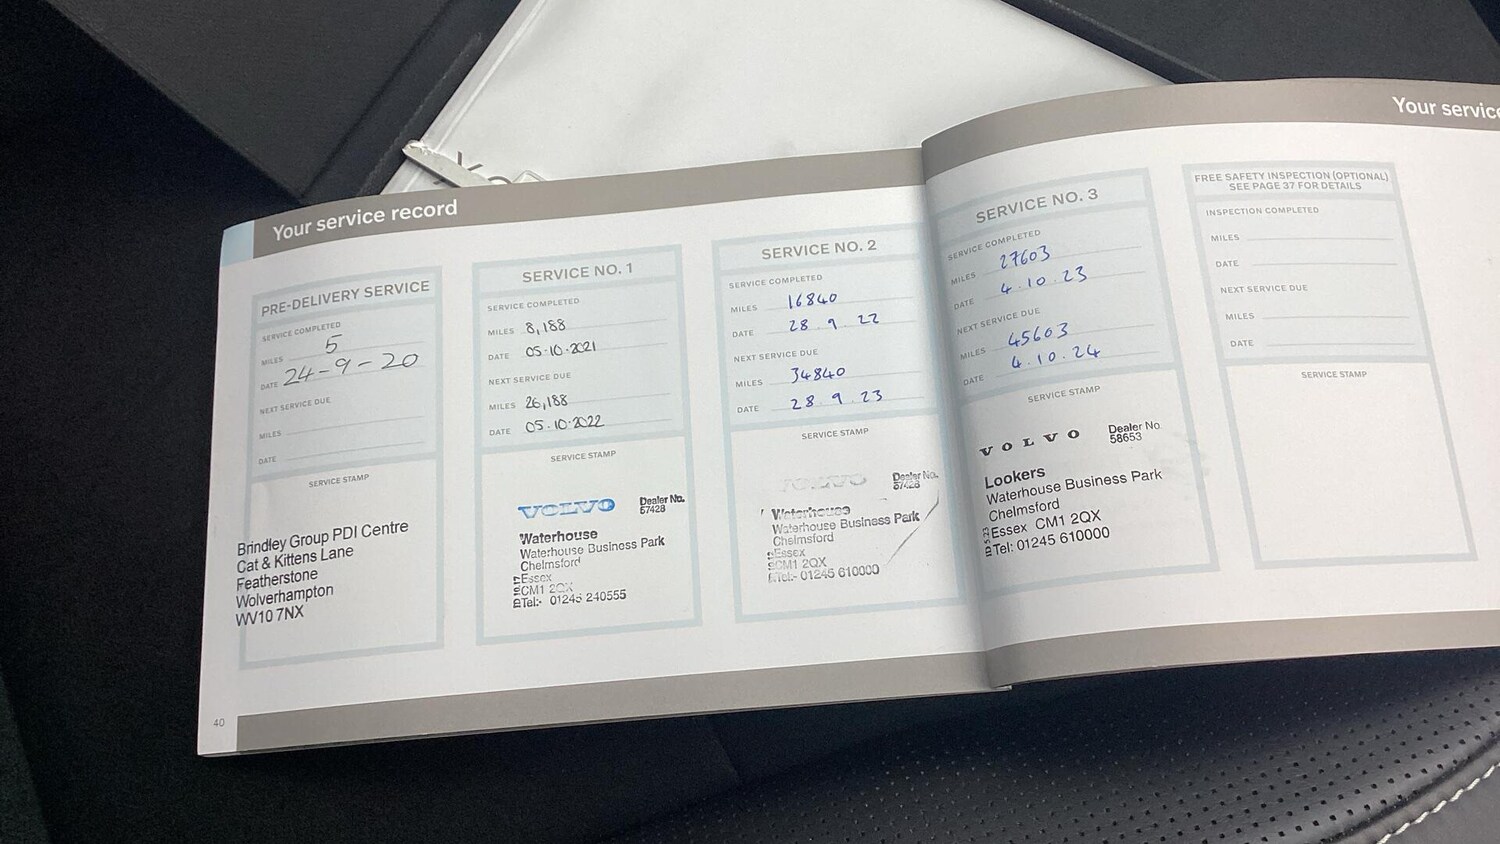 Your service record
PRE-DELIVERY SERVICE
SERVICE COMPLETED
MILES 5
DATE 24-9-20
NEXT SERVICE DUE
MILES
DATE
SERVICE STAMP
Brindley Group PDI Centre
Cat & Kittens Lane
Featherstone
Wolverhampton
WV10 7NX
SERVICE NO. 1
SERVICE COMPLETED
MILES 8,188
DATE 05.10.2021
NEXT SERVICE DUE
MILES 26,188
DATE 05.10.2022
SERVICE STAMP
VOLVO
Dealer No.
57428
Waterhouse
Waterhouse Business Park
Chelmsford
Essex
CM1 2QX
Tel:- 01245 240555
SERVICE NO. 2
SERVICE COMPLETED
MILES 16840
DATE 28.9.22
NEXT SERVICE DUE
MILES 34840
DATE 28.9.23
SERVICE STAMP
VOLVO
Dealer No.
57428
Waterhouse
Waterhouse Business Park
Chelmsford
Essex
CM1 2QX
Tel:- 01245 610000
40
Your service
SERVICE NO. 3
SERVICE COMPLETED
MILES 27603
DATE 4.10.23
NEXT SERVICE DUE
MILES 45603
DATE 4.10.24
SERVICE STAMP
VOLVO
Dealer No.
58653
Lookers
Waterhouse Business Park
Chelmsford
Essex CM1 2QX
Tel: 01245 610000
FREE SAFETY INSPECTION (OPTIONAL)
SEE PAGE 37 FOR DETAILS
INSPECTION COMPLETED
MILES
DATE
NEXT SERVICE DUE
MILES
DATE
SERVICE STAMP